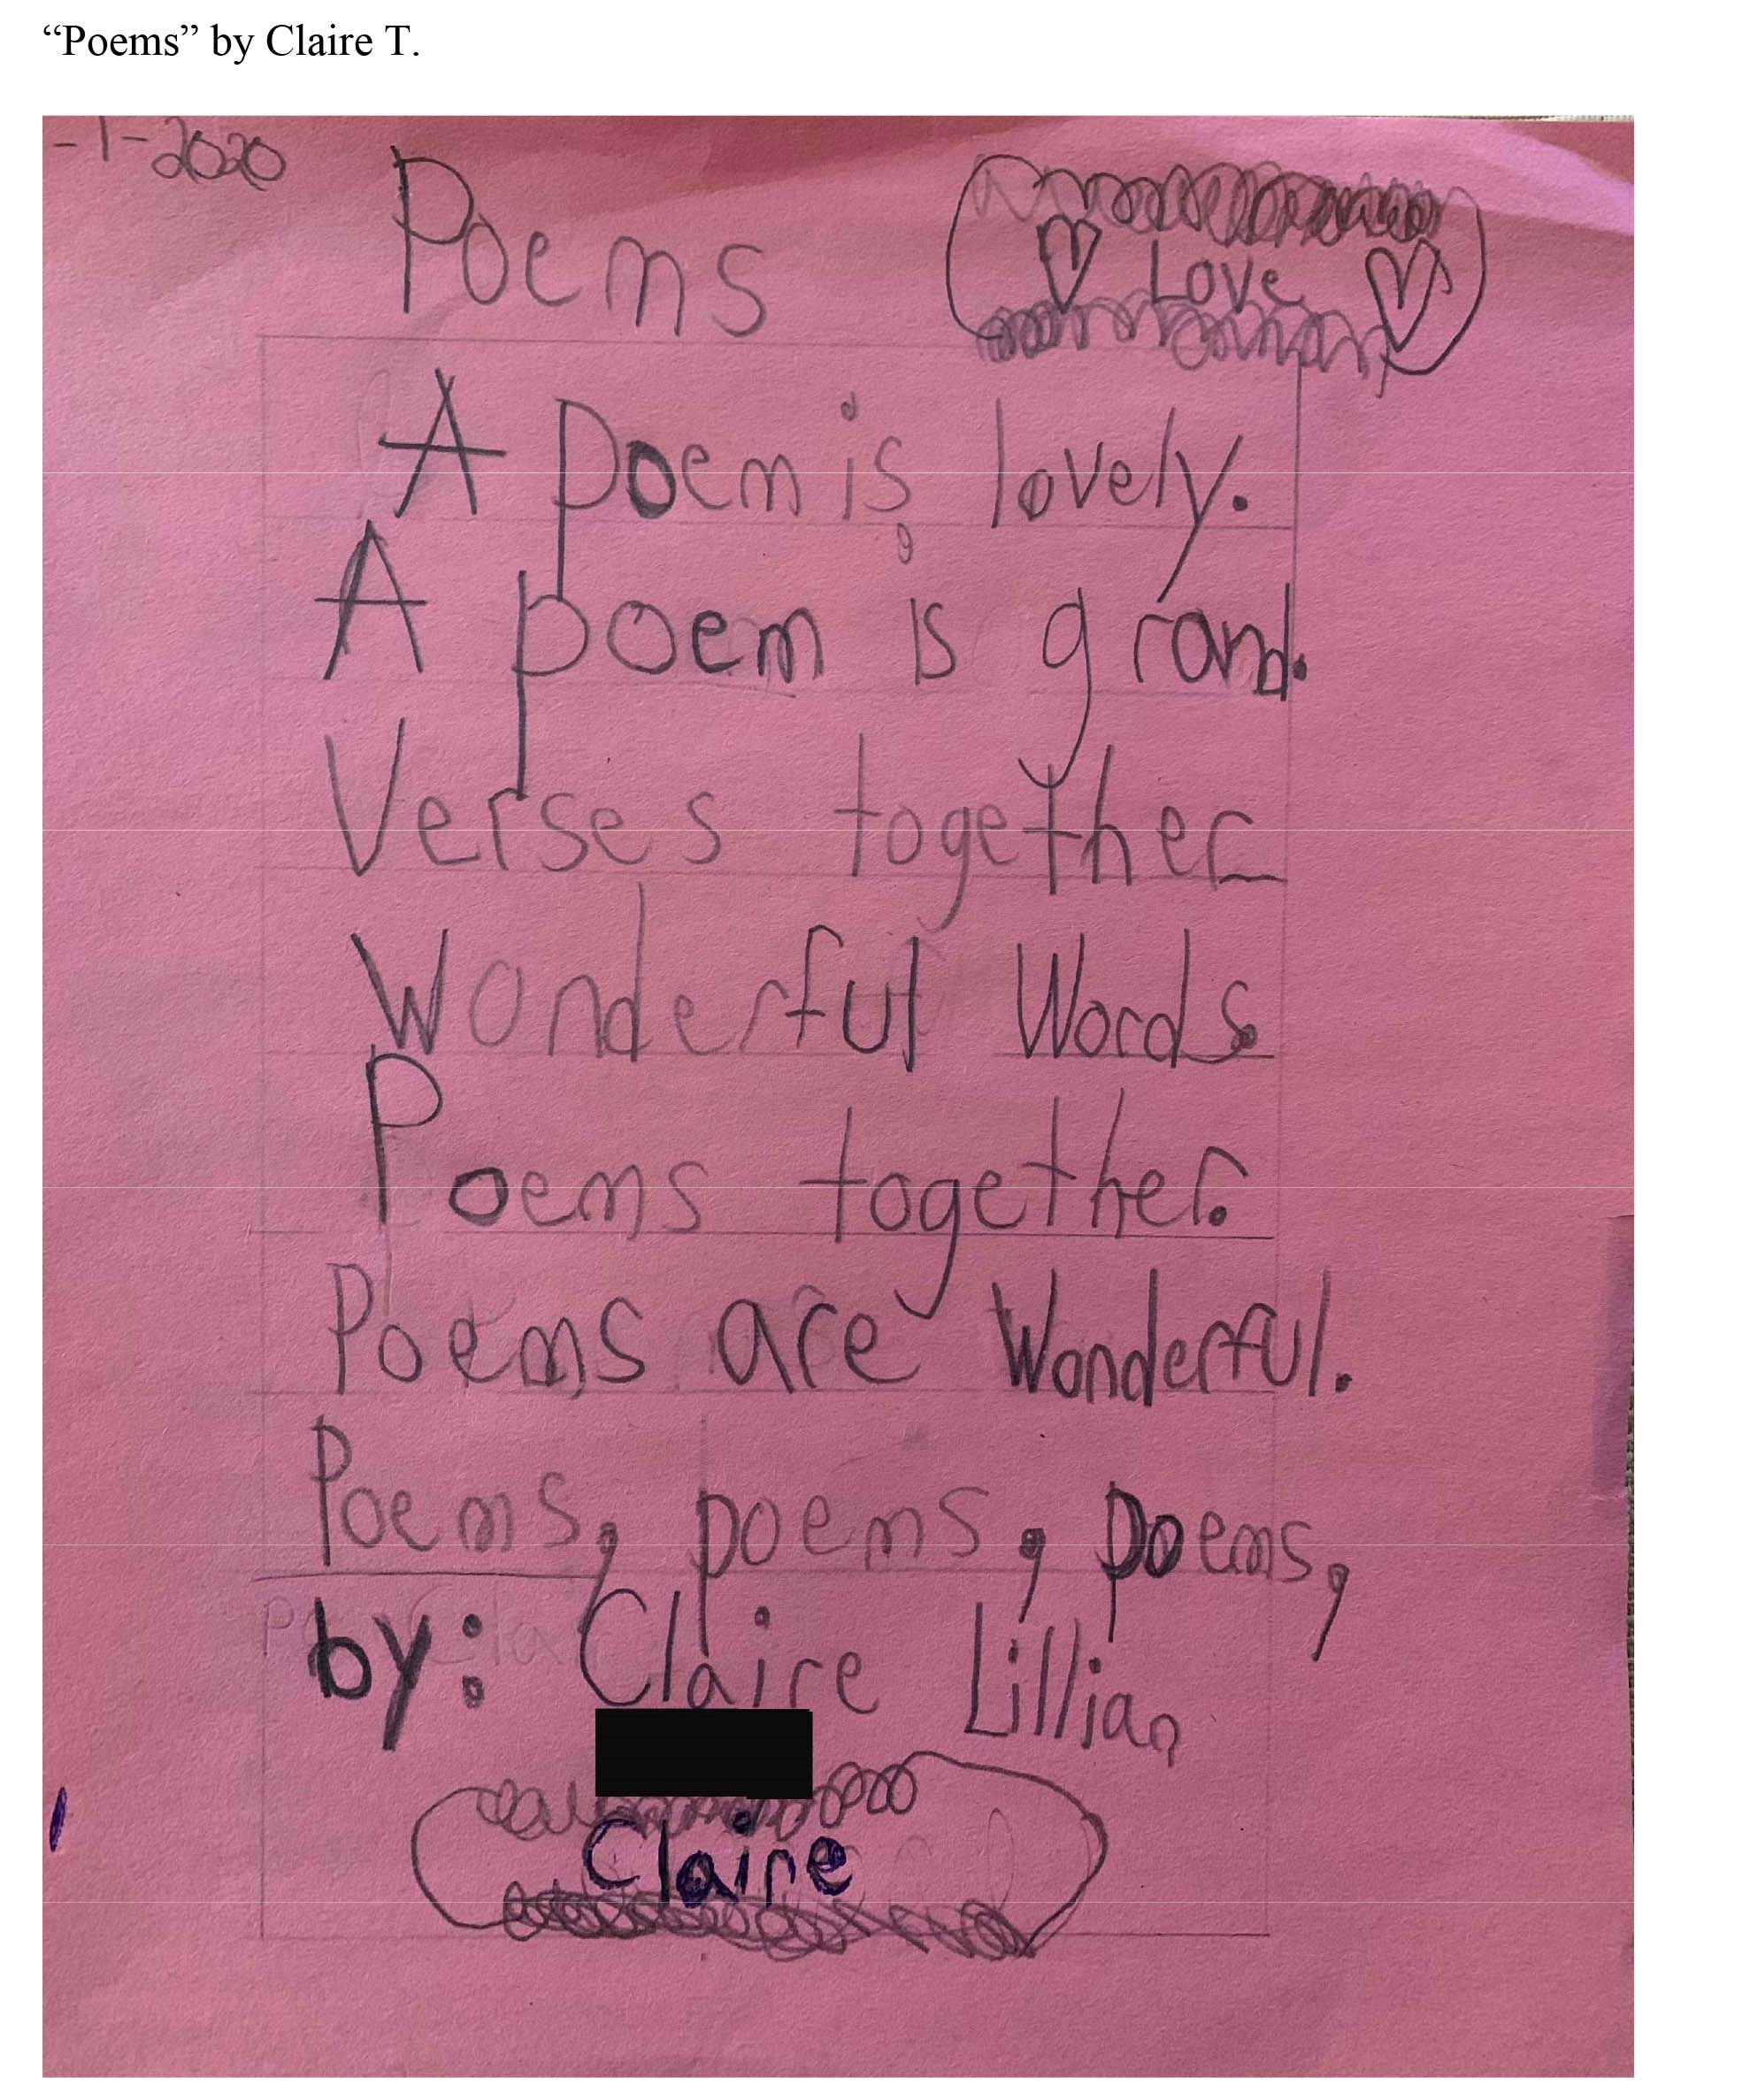 “Poems” by Claire T.
-1-2020
Poems
♡ Love ♡
A poem is lovely.
A poem is grand.
Verses together
Wonderful Words.
Poems together.
Poems are Wonderful.
Poems, poems, poems,
by: Claire Lillian
Claire